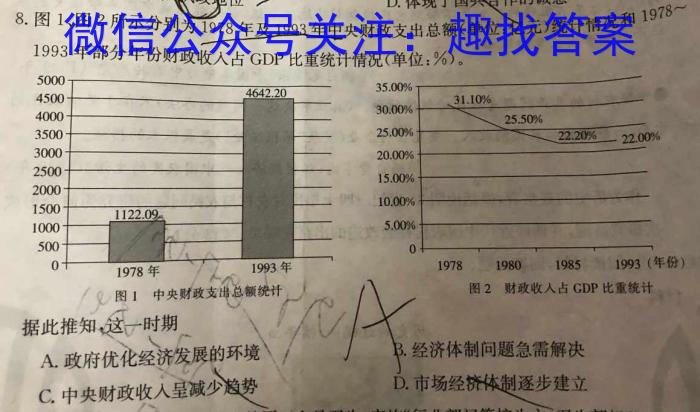 D. 体现了国共合作的诚意
8. 图1、图2所示分别为1978年及1993年中央财政支出总额(单位:亿元)统计情况和1978~
微信公众号关注：趣找答案
1993年部分年份财政收入占GDP比重统计情况(单位:%)。
5000
4500
4000
3500
3000
2500
2000
1500
1000
500
0
1122.09
4642.20
1978年
1993年
图1 中央财政支出总额统计
35.00%
30.00%
25.00%
20.00%
15.00%
10.00%
5.00%
0
31.10%
25.50%
22.20%
22.00%
1978
1980
1985
1993
(年份)
图2 财政收入占GDP比重统计
据此推知,这一时期
A. 政府优化经济发展的环境
B. 经济体制问题急需解决
C. 中央财政收入呈减少趋势
D. 市场经济体制逐步建立
A